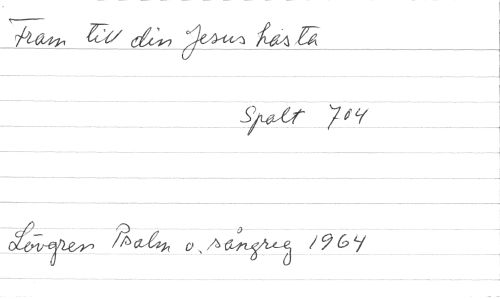 Fram till din Jesus hasta
Spalt 704
Lövgren Psalm o. sångreg 1964